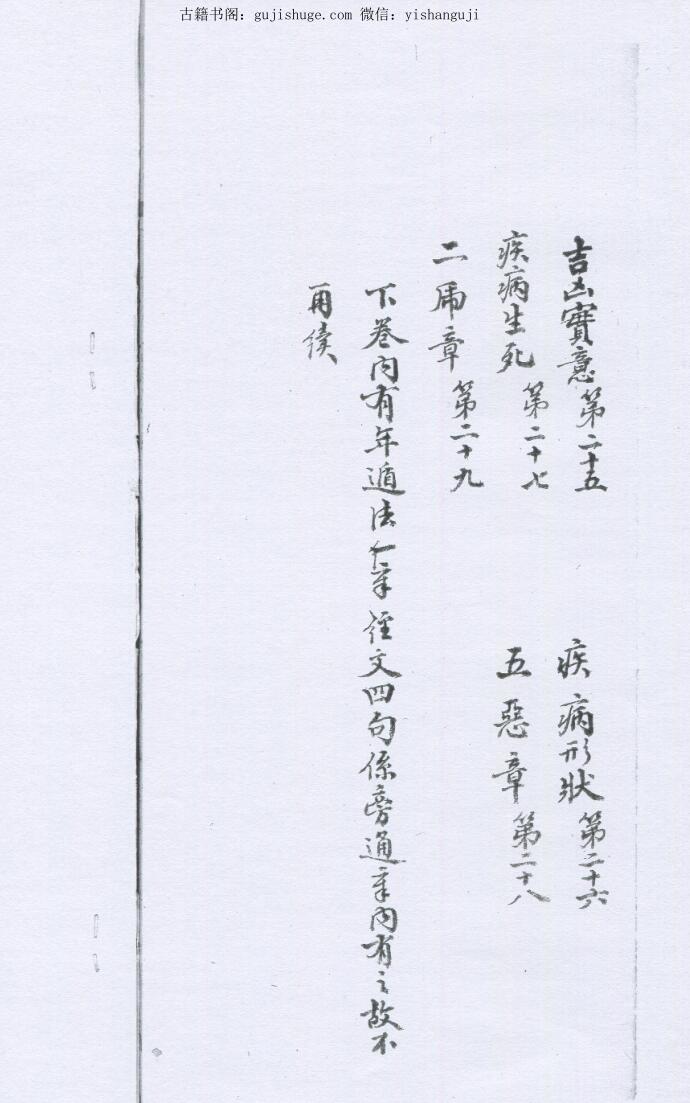 古籍书阁：gujishuge.com 微信：yishanguji
吉凶實意第二十五
疾病形狀第二十六
疾病生死第二十七
五惡章第二十八
二馬章第二十九
下卷內有年遁法一章經文四句係旁通章內有之故不
再續